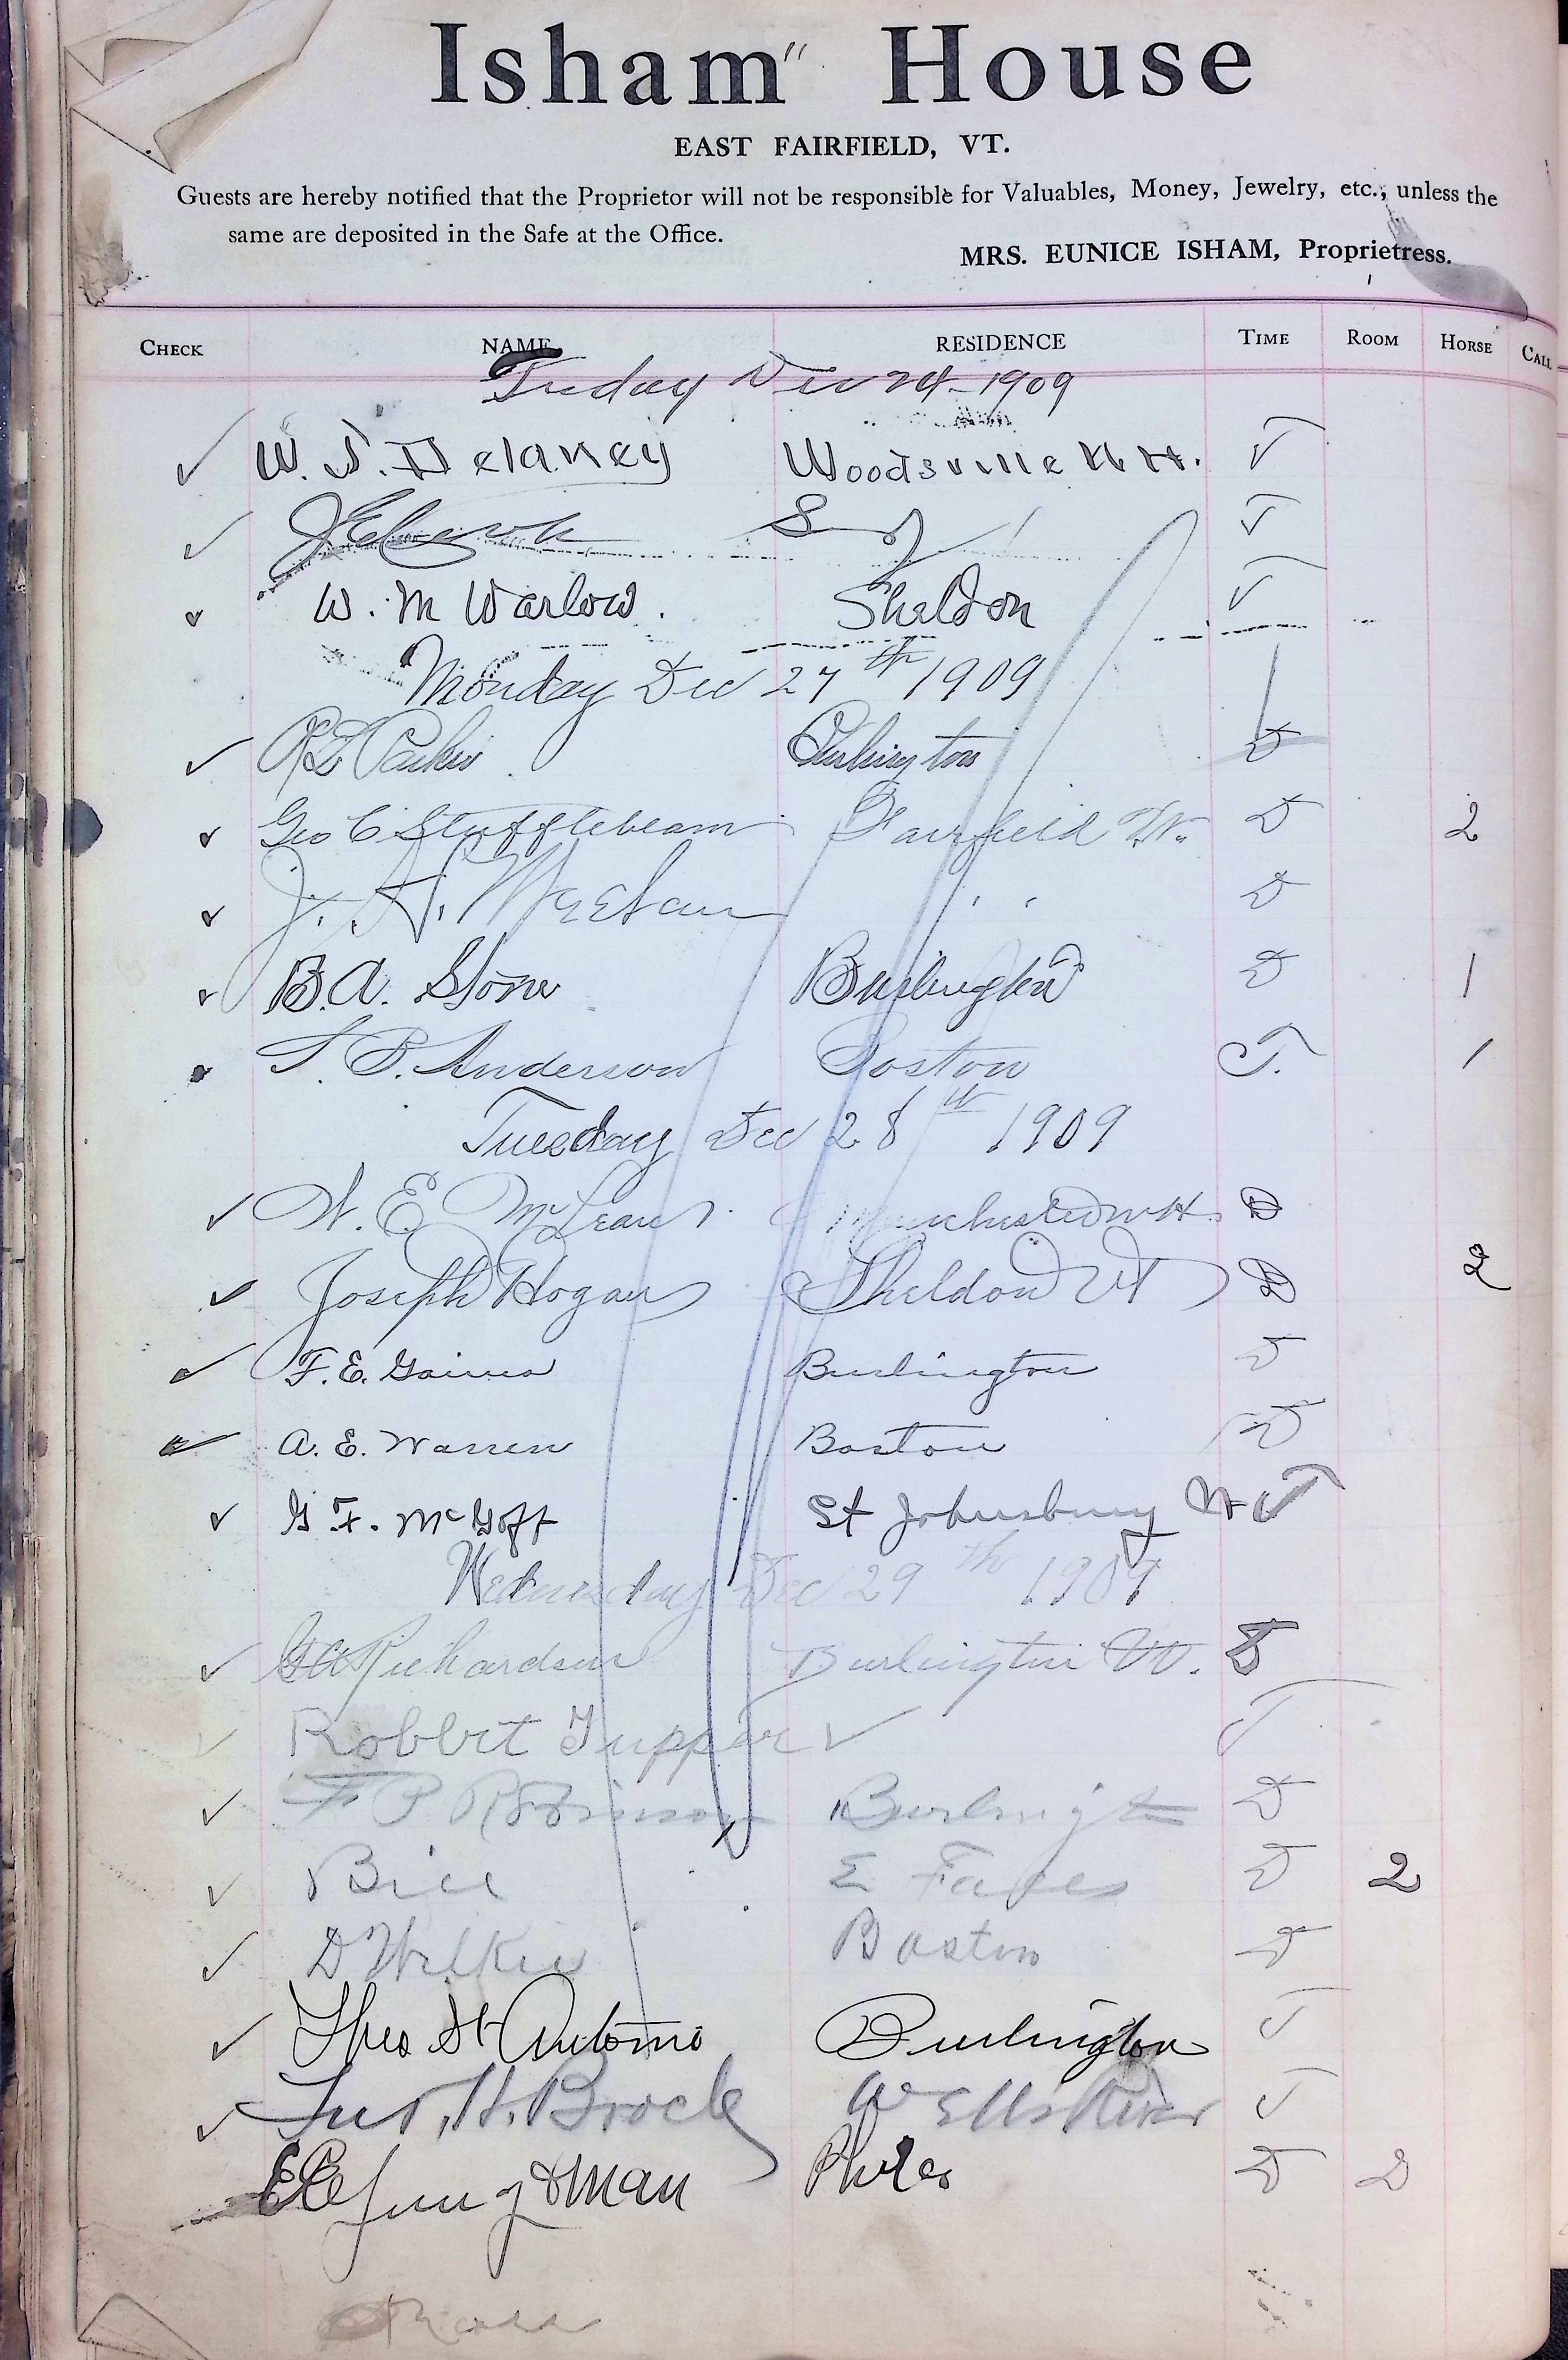 Isham House
EAST FAIRFIELD, VT.
Guests are hereby notified that the Proprietor will not be responsible for Valuables, Money, Jewelry, etc., unless the
same are deposited in the Safe at the Office.
MRS. EUNICE ISHAM, Proprietress.
CHECK NAME RESIDENCE TIME ROOM HORSE CALL
Friday Dec 24 - 1909
W. J. Delaney Woodsville N.H. T
T
W. M Warlow. Sheldon T
Monday Dec 27th 1909
Burlington D
Geo C Stufflebeam Fairfield Vt. D 2
J. A. " " D
B. A. Stone Burlington D 1
T. B. Anderson Boston T. 1
Tuesday Dec 28th 1909
W. E. McLean Manchester N.H. D
Joseph Hogan Sheldon Vt D 2
F. E. Gaines Burlington D
A. E. Warren Boston D
G F. McGoff St Johnsbury Vt T
Wednesday Dec 29th 1909
G A Richardson Burlington Vt. D
Robbit Tupper T
F P Robinson Burlington D
Bill E D 2
D Wilkie Boston D
Theo St Antoine Burlington T
Jas. H. Brock Wells River T
& Man D 2